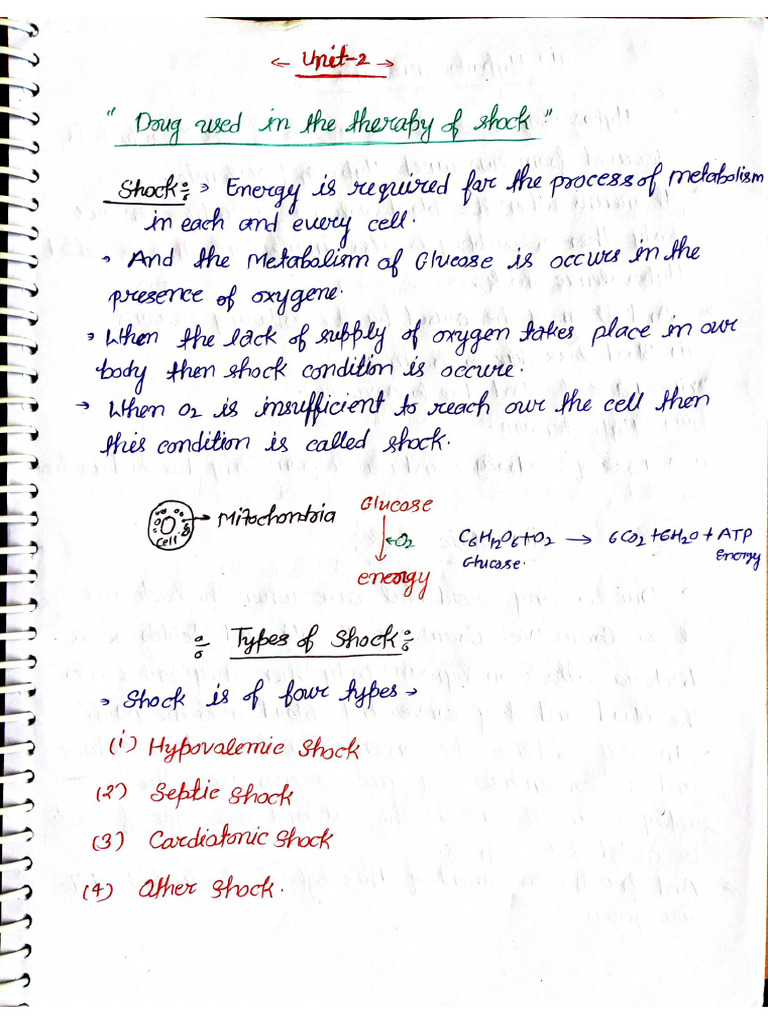 ← Unit-2 →
" Doug used in the therapy of shock "
Shock:- → Energy is required for the process of metabolism
in each and every cell.
→ And the Metabolism of Glucose is occurs in the
presence of oxygene.
→ When the lack of supply of oxygen takes place in our
body then shock condition is occure.
→ When O2 is insufficient to reach our the cell then
this condition is called shock.
Cell → Mitochombia
Glucose
←O2
energy
C6H12O6+O2 → 6CO2+6H2O+ATP
Glucose. Energy
Types of Shock
→ Shock is of four types →
(1) Hypovalemic Shock
(2) Septic Shock
(3) Cardiatonic Shock
(4) Other Shock.